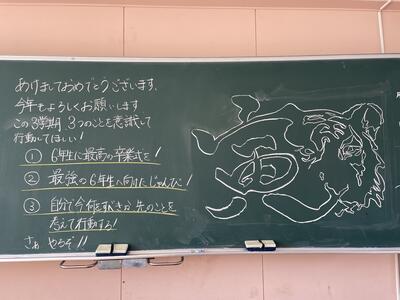 あけましておめでとうございます。
今年もよろしくお願いします
この3学期 3つのことを意識して
行動してほしい!
① 6年生に最高の卒業式を!
② 最後の6年生へ向けたじゅんび!
③ 自分で今何をすべきか、先のことを
考えて行動する!
さぁ やるぞ!!